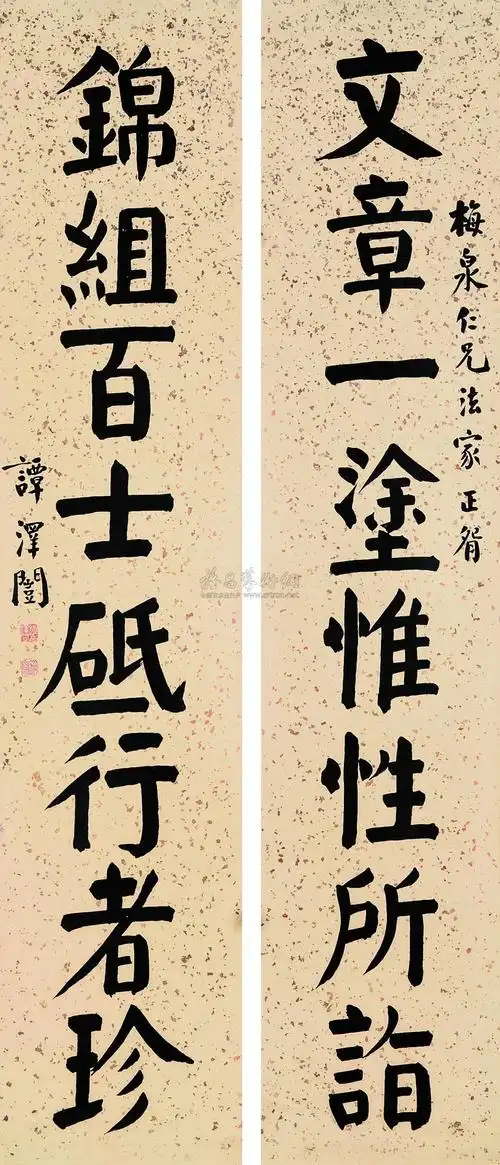 文章一塗惟性所詣
梅泉仁兄法家正臀
錦組百士砥行者珍
譚澤闓